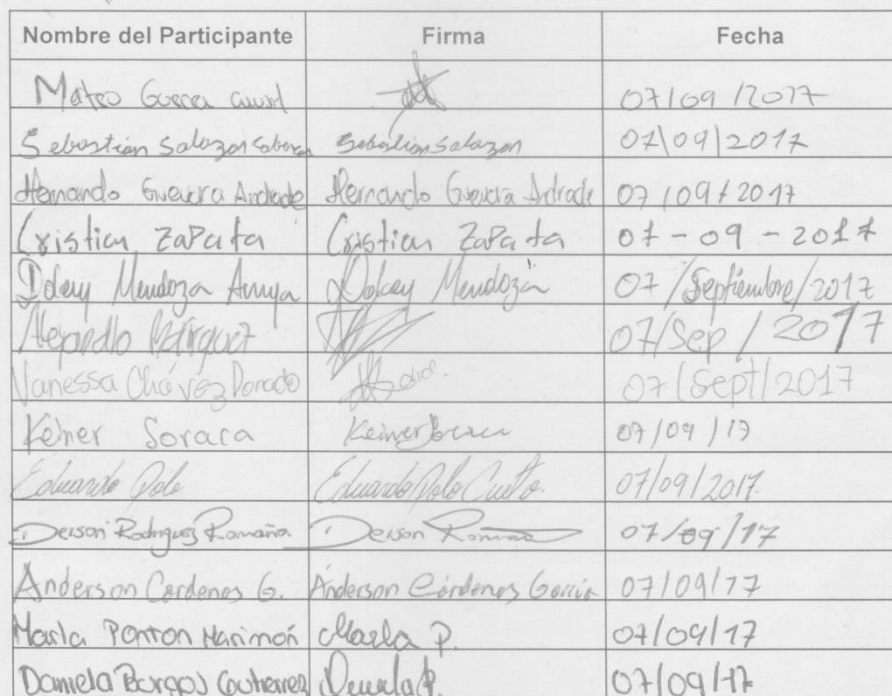 Nombre del Participante Firma Fecha
Mateo Guerra 07/09/2017
Sebastian Salazar Sebastian Salazar 07/09/2017
Hernando Guevara Andrade Hernando Guevara Andrade 07/09/2017
Cristian ZaPata Cristian ZaPata 07-09-2017
Mendoza Mendoza 07/Septiembre/2017
07/Sep/2017
Vanessa Chávez Dorado 07/Sept/2017
Keiner Soraca Keiner 07/09/17
Eduardo Polo Eduardo Polo 07/09/2017
Deison Rodriguez Romaña Deison 07/09/17
Anderson Cardenas G. Anderson Cárdenas García 07/09/17
Marla Ponton Marimon Marla P. 07/09/17
Daniela Burgos Gutierrez Daniela 07/09/17